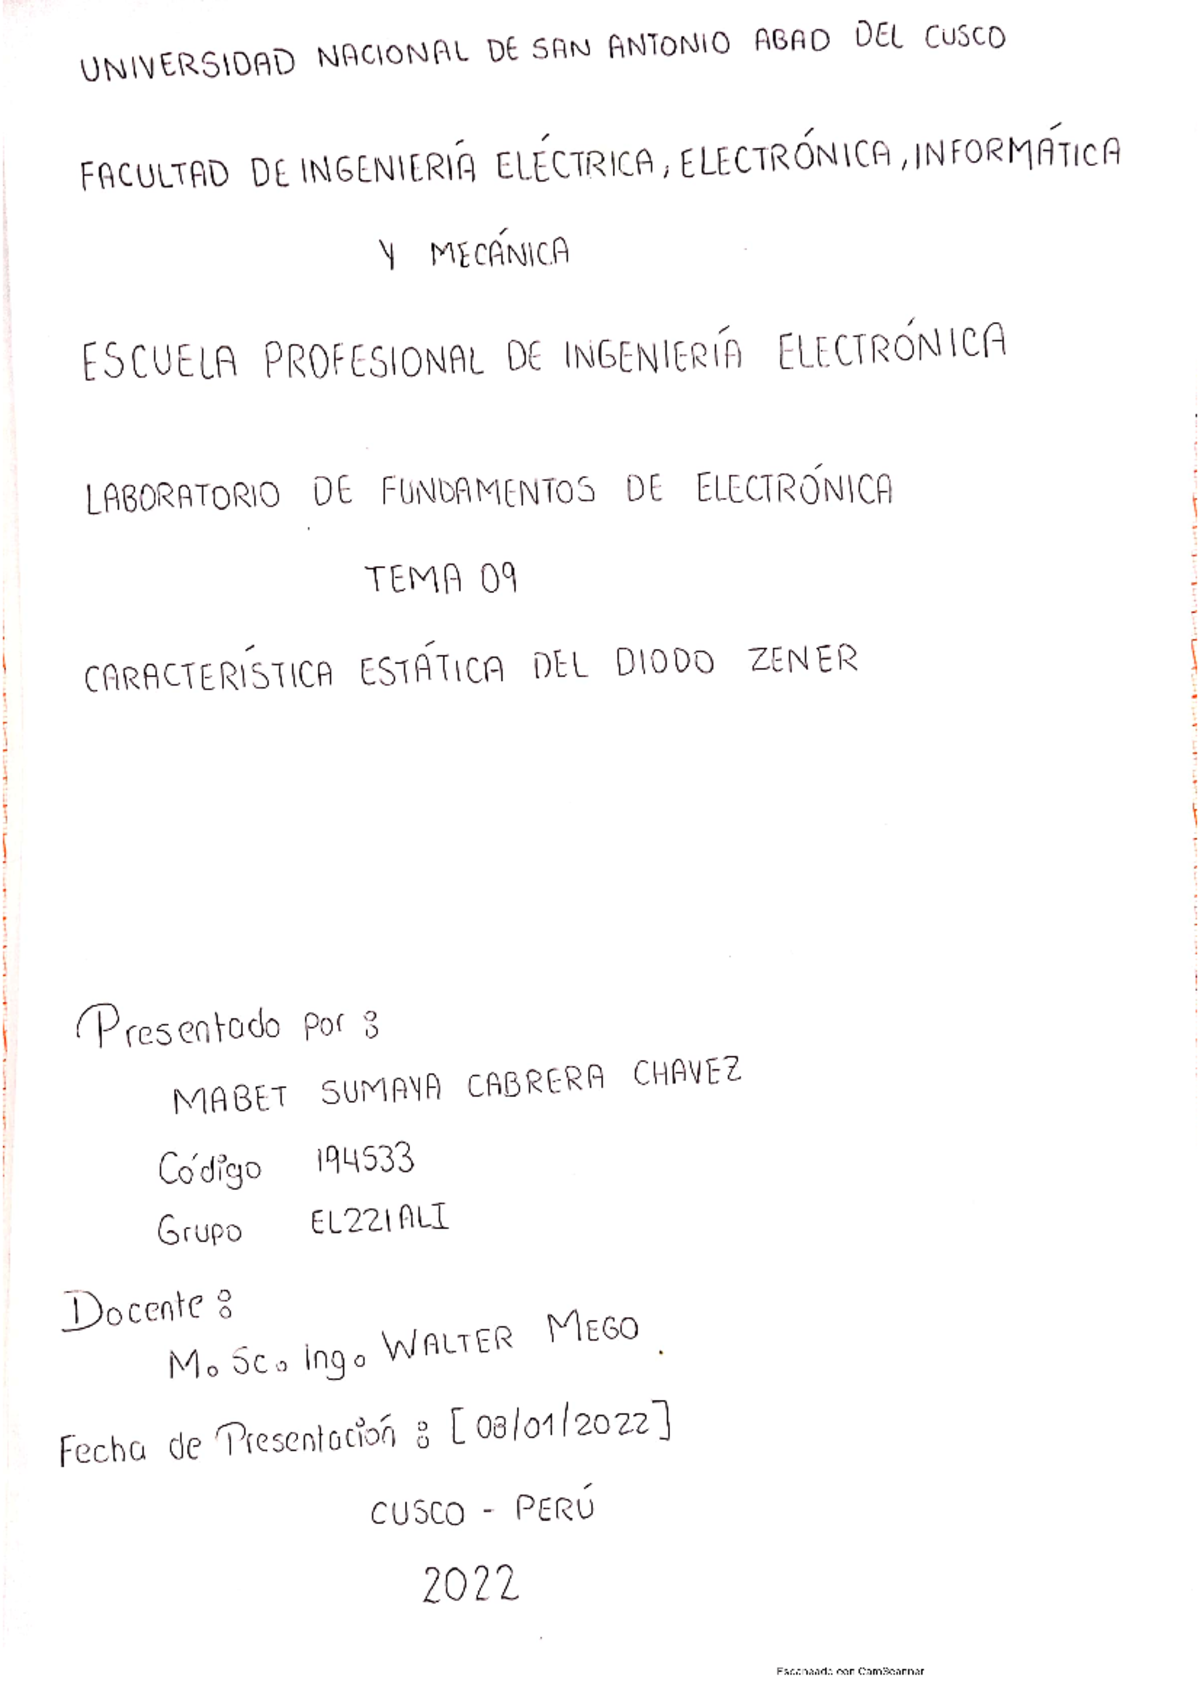 UNIVERSIDAD NACIONAL DE SAN ANTONIO ABAD DEL CUSCO
FACULTAD DE INGENIERIÁ ELÉCTRICA, ELECTRÓNICA, INFORMÁTICA
Y MECÁNICA
ESCUELA PROFESIONAL DE INGENIERÍA ELECTRÓNICA
LABORATORIO DE FUNDAMENTOS DE ELECTRÓNICA
TEMA 09
CARACTERÍSTICA ESTÁTICA DEL DIODO ZENER
Presentado por :
MABET SUMAYA CABRERA CHAVEZ
Código 194533
Grupo EL221ALI
Docente :
M. Sc. ing. WALTER MEGO
Fecha de Presentación : [08/01/2022]
CUSCO - PERÚ
2022
Escaneado con CamScanner